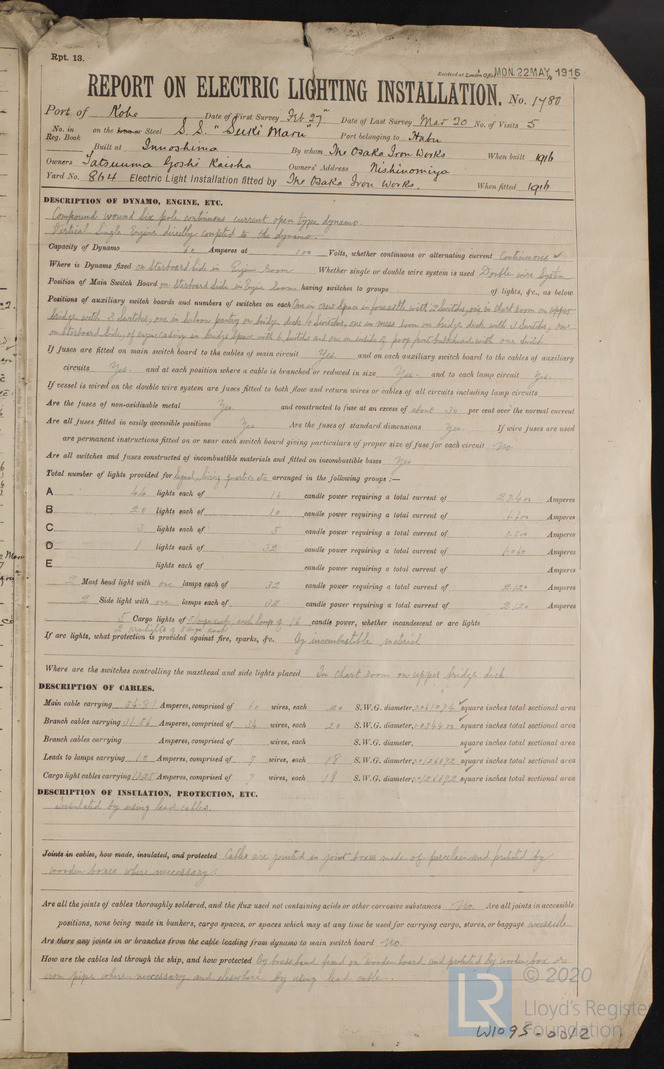 Rpt. 13.
Received at London Office MON. 22 MAY. 1916
REPORT ON ELECTRIC LIGHTING INSTALLATION. No. 1780
Port of Kobe Date of First Survey Feb 27" Date of Last Survey Mar 20 No. of Visits 5
No. in Reg. Book on the Iron or Steel S. S. "Suki Maru" Port belonging to Habu
Built at Innoshima By whom The Osaka Iron Works When built 1916
Owners Tatsuuma Goshi Kaisha Owners' Address Nishinomiya
Yard No. 864 Electric Light Installation fitted by The Osaka Iron Works. When fitted 1916
DESCRIPTION OF DYNAMO, ENGINE, ETC.
Compound wound six pole continuous current open type dynamo.
Vertical Single Engine directly coupled to the dynamo.
Capacity of Dynamo 60 Amperes at 100 Volts, whether continuous or alternating current Continuous
Where is Dynamo fixed on Starboard Side in Engine Room Whether single or double wire system is used Double wire System
Position of Main Switch Board on Starboard Side in Engine Room having switches to groups of lights, &c., as below
Positions of auxiliary switch boards and numbers of switches on each One in crew space in forecastle with switches, one in chart room on upper
bridge with switches, one in Saloon pantry on bridge deck Switches, one in mess room on bridge deck with switches, one
on starboard side, of engine casing in bridge space with 6 switches and one on outside of poop front bulkhead with one switch
If fuses are fitted on main switch board to the cables of main circuit Yes. and on each auxiliary switch board to the cables of auxiliary
circuits Yes. and at each position where a cable is branched or reduced in size Yes. and to each lamp circuit Yes.
If vessel is wired on the double wire system are fuses fitted to both flow and return wires or cables of all circuits including lamp circuits
Are the fuses of non-oxidizable metal Yes. and constructed to fuse at an excess of about 30 per cent over the normal current
Are all fuses fitted in easily accessible positions Yes Are the fuses of standard dimensions Yes. If wire fuses are used
are permanent instructions fitted on or near each switch board giving particulars of proper size of fuse for each circuit No
Are all switches and fuses constructed of incombustible materials and fitted on incombustible bases Yes
Total number of lights provided for signal, living quarters etc arranged in the following groups :—
A 44 lights each of 16 candle power requiring a total current of Amperes
B 20 lights each of 10 candle power requiring a total current of Amperes
C 3 lights each of 5 candle power requiring a total current of Amperes
D 1 lights each of 32 candle power requiring a total current of 1.060 Amperes
E lights each of candle power requiring a total current of Amperes
2 Mast head light with one lamps each of 32 candle power requiring a total current of 2.120 Amperes
2 Side light with one lamps each of 32 candle power requiring a total current of 2.120 Amperes
5 Cargo lights of each lamp of 16 candle power, whether incandescent or arc lights
2 arc lights of 5 amps each
If arc lights, what protection is provided against fire, sparks, &c. By incombustible material
Where are the switches controlling the masthead and side lights placed In Chart room on upper bridge deck
DESCRIPTION OF CABLES.
Main cable carrying 54.81 Amperes, comprised of 60 wires, each 20 S.W.G. diameter, square inches total sectional area
Branch cables carrying 31.56 Amperes, comprised of 34 wires, each 20 S.W.G. diameter, square inches total sectional area
Branch cables carrying Amperes, comprised of wires, each S.W.G. diameter, square inches total sectional area
Leads to lamps carrying Amperes, comprised of 7 wires, each 18 S.W.G. diameter, square inches total sectional area
Cargo light cables carrying Amperes, comprised of 7 wires, each 18 S.W.G. diameter, square inches total sectional area
DESCRIPTION OF INSULATION, PROTECTION, ETC.
Insulated by using lead cables.
Joints in cables, how made, insulated, and protected Cables are jointed in joint boxes made of porcelain and protected by
wooden boxes where necessary.
Are all the joints of cables thoroughly soldered, and the flux used not containing acids or other corrosive substances No. Are all joints in accessible
positions, none being made in bunkers, cargo spaces, or spaces which may at any time be used for carrying cargo, stores, or baggage accessible
Are there any joints in or branches from the cable leading from dynamo to main switch board No.
How are the cables led through the ship, and how protected By brass band fixed on wooden board and protected by wooden box or
iron pipes where necessary and elsewhere by using lead cable.
© 2020
LR
Lloyd's Register
Foundation
W1095-0312